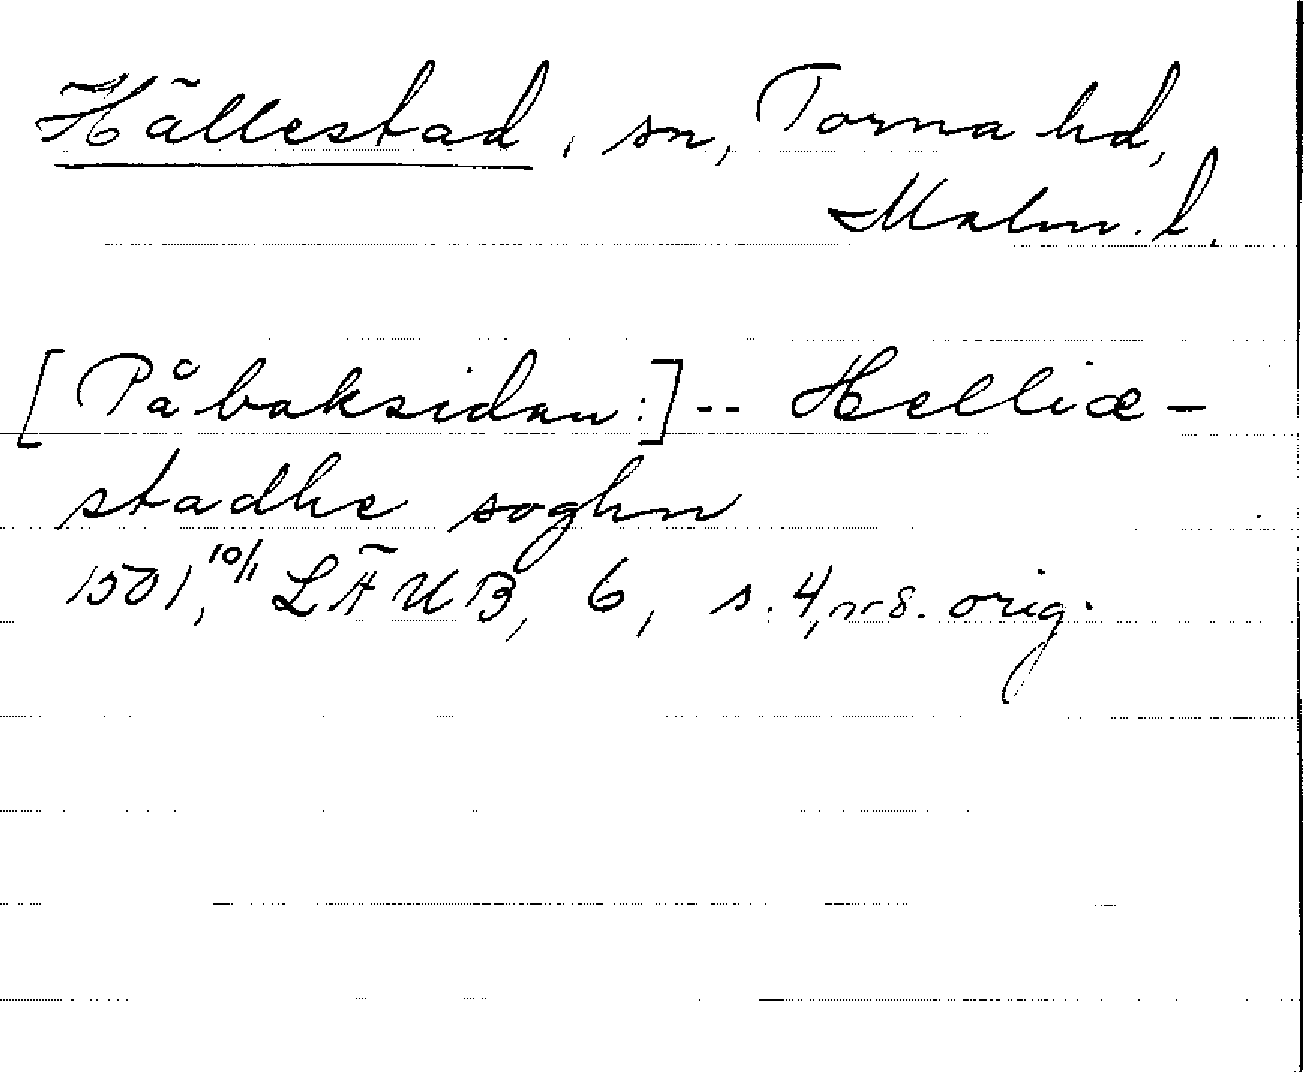 Hällestad, sn, Torna hd,
Malm. l.
[På baksidan:] -- Helliæ-
stadhe soghn
1501, 10/1 LÄUB, 6, s. 4, nr 8. orig.